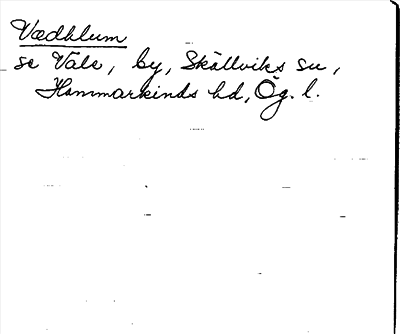 Vædhlum
se Vale, by, Skällviks sn,
Hammarkinds hd, Ög. l.